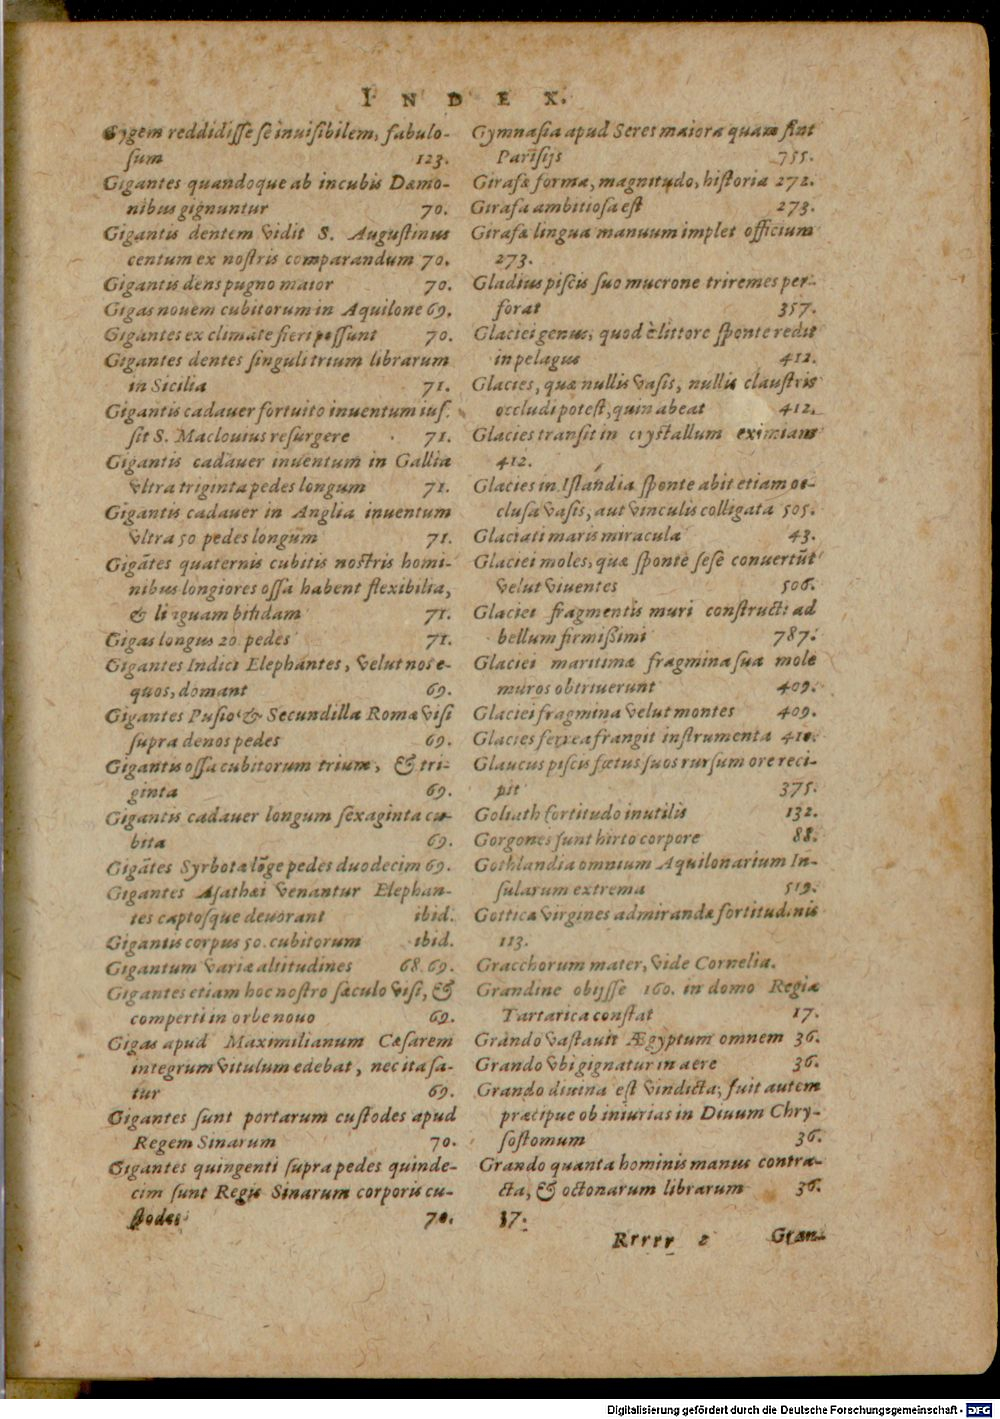 INDEX.
Gygem reddidiſſe ſe inuiſibilem, fabulo-
ſum 123.
Gigantes quandoque ab incubis Dæmo-
nibus gignuntur 70.
Gigantis dentem vidit S. Auguſtinus
centum ex noſtris comparandum 70.
Gigantis dens pugno maior 70.
Gigas nouem cubitorum in Aquilone 69.
Gigantes ex climate fieri poſſunt 70.
Gigantes dentes ſinguli trium librarum
in Sicilia 71.
Gigantis cadauer fortuito inuentum iuſ-
ſit S. Maclouius reſurgere 71.
Gigantis cadauer inuentum in Gallia
vltra triginta pedes longum 71.
Gigantis cadauer in Anglia inuentum
vltra 50 pedes longum 71.
Gigātes quaternis cubitis noſtris homi-
nibus longiores oſſa habent flexibilia,
& linguam bifidam 71.
Gigas longus 20. pedes 71.
Gigantes Indici Elephantes, velut nos e-
quos, domant 69.
Gigantes Puſio & Secundilla Romæ viſi
ſupra denos pedes 69.
Gigantis oſſa cubitorum trium, & tri-
ginta 69.
Gigantis cadauer longum ſexaginta cu-
bita 69.
Gigātes Syrbotæ lōge pedes duodecim 69.
Gigantes Aſathæi venantur Elephan-
tes captoſque deuorant ibid.
Gigantis corpus 50. cubitorum ibid.
Gigantum variæ altitudines 68. 69.
Gigantes etiam hoc noſtro ſæculo viſi, &
comperti in orbe nouo 69.
Gigas apud Maximilianum Cæſarem
integrum vitulum edebat, nec ita ſa-
tur 69.
Gigantes ſunt portarum cuſtodes apud
Regem Sinarum 70.
Gigantes quingenti ſupra pedes quinde-
cim ſunt Regis Sinarum corporis cu-
ſtodes 70.
Gymnaſia apud Seres maiora quam ſint
Pariſijs 755.
Girafæ forma, magnitudo, hiſtoria 272.
Girafa ambitioſa eſt 273.
Girafæ lingua manuum implet officium
273.
Gladius piſcis ſuo mucrone triremes per-
forat 357.
Glaciei genus, quod è littore ſponte redit
in pelagus 412.
Glacies, quæ nullis vaſis, nullis clauſtris
occludi poteſt, quin abeat 412.
Glacies tranſit in cryſtallum eximiam
412.
Glacies in Iſlandia ſponte abit etiam oc-
cluſa vaſis, aut vinculis colligata 505.
Glaciati maris miracula 43.
Glaciei moles, quæ ſponte ſeſe conuertūt
velut viuentes 506.
Glaciei fragmentis muri conſtructi ad
bellum firmiſſimi 787.
Glaciei maritimæ fragmina ſua mole
muros obtriuerunt 409.
Glaciei fragmina velut montes 409.
Glacies ferrea frangit inſtrumenta 410.
Glaucus piſcis fœtus ſuos rurſum ore reci-
pit 375.
Goliath fortitudo inutilis 132.
Gorgones ſunt hirto corpore 88.
Gothlandia omnium Aquilonarium In-
ſularum extrema 519.
Gotticæ virgines admirandæ fortitudinis
113.
Gracchorum mater, vide Cornelia.
Grandine obijſſe 160. in domo Regiæ
Tartarica conſtat 17.
Grando vaſtauit Ægyptum omnem 36.
Grando vbi gignatur in aere 36.
Grando diuina eſt vindicta, fuit autem
præcipue ob iniurias in Diuum Chry-
ſoſtomum 36.
Grando quanta hominis manus contra-
cta, & octonarum librarum 36.
37.
Rrrrr 2 Gran-
Digitalisierung gefördert durch die Deutsche Forschungsgemeinschaft - DFG